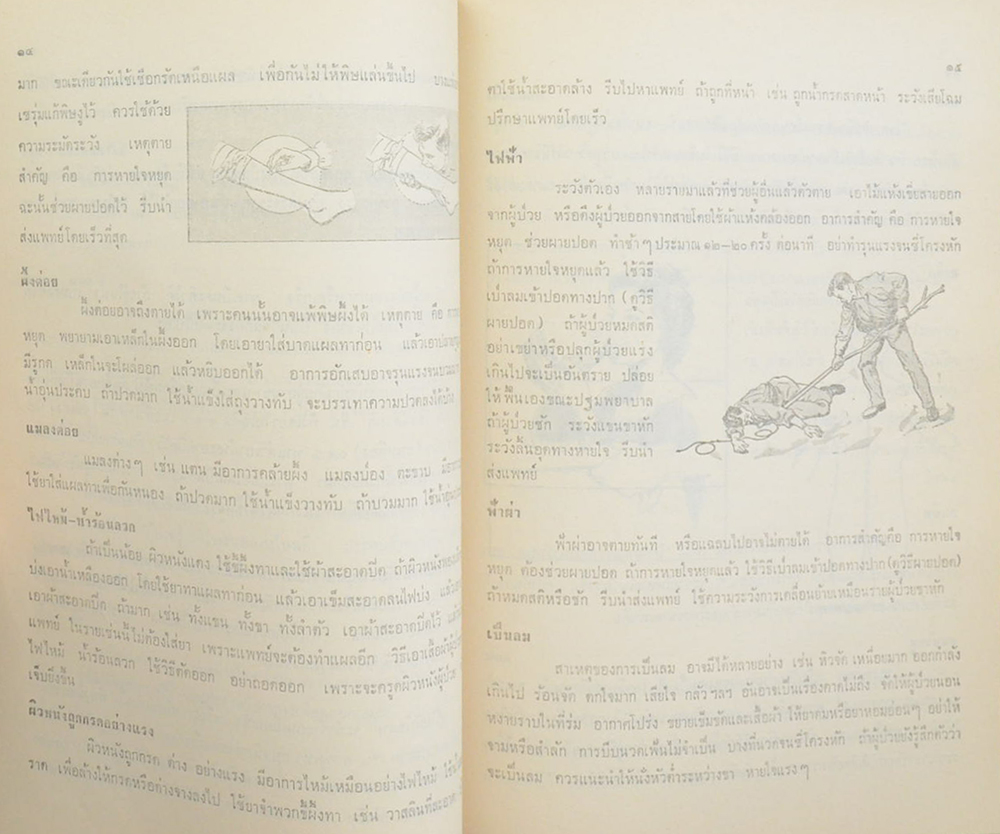 ๑๔
มาก ขณะเดียวกันใช้เชือกรัดเหนือแผล เพื่อกันไม่ให้พิษแล่นขึ้นไป
เซรุ่มแก้พิษงูไว้ ควรใช้ด้วย
ความระมัดระวัง เหตุตาย
สำคัญ คือ การหายใจหยุด
ฉะนั้นช่วยผายปอดไว้ รีบนำ
ส่งแพทย์โดยเร็วที่สุด
ผึ้งต่อย
ผึ้งต่อยอาจถึงตายได้ เพราะคนนั้นอาจแพ้พิษผึ้งได้ เหตุตาย คือ
หยุด พยายามเอาเหล็กในผึ้งออก โดยเอายาใส่บาดแผลทาก่อน แล้วเอา
มีรูกด เหล็กในจะโผล่ออก แล้วหยิบออกได้ อาการอักเสบอาจรุนแรงจน
น้ำอุ่นประคบ ถ้าปวดมาก ใช้น้ำแข็งใส่ถุงวางทับ จะบรรเทาความปวดลงได้บ้าง
แมลงต่อย
แมลงต่างๆ เช่น แตน มีอาการคล้ายผึ้ง แมลงป่อง ตะขาบ
ใช้ยาใส่แผลทาเพื่อกันหนอง ถ้าปวดมาก ใช้น้ำแข็งวางทับ ถ้าบวมมาก
ไฟไหม้-น้ำร้อนลวก
ถ้าเป็นน้อย ผิวหนังแดง ใช้ขี้ผึ้งทาและใช้ผ้าสะอาดปิด ถ้าผิวหนัง
บ่งเอาน้ำเหลืองออก โดยใช้ยาทาแผลทาก่อน แล้วเอาเข็มสะอาดลนไฟบ่ง
เอาผ้าสะอาดปิด ถ้ามาก เช่น ทั้งแขน ทั้งขา ทั้งลำตัว เอาผ้าสะอาดปิดไว้
แพทย์ ในรายเช่นนี้ไม่ต้องใส่ยา เพราะแพทย์จะต้องทำแผลอีก วิธีเอาเสื้อผ้า
ไฟไหม้ น้ำร้อนลวก ใช้วิธีตัดออก อย่าถอดออก เพราะจะครูดผิวหนังผู้ป่วย
เจ็บยิ่งขึ้น
ผิวหนังถูกกรดอย่างแรง
ผิวหนังถูกกรด ด่าง อย่างแรง มีอาการไหม้เหมือนอย่างไฟไหม้
ราด เพื่อล้างให้กรดหรือด่างจางลงไป ใช้ยาจำพวกขี้ผึ้งทา เช่น วาสลินที่สะอาด
๑๕
ตาใช้น้ำสะอาดล้าง รีบไปหาแพทย์ ถ้าถูกที่หน้า เช่น ถูกน้ำกรดสาดหน้า ระวังเสียโฉม
ปรึกษาแพทย์โดยเร็ว
ไฟฟ้า
ระวังตัวเอง หลายรายมาแล้วที่ช่วยผู้อื่นแล้วตัวตาย เอาไม้แห้งเขี่ยสายออก
จากผู้ป่วย หรือดึงผู้ป่วยออกจากสายโดยใช้ผ้าแห้งคล้องออก อาการสำคัญ คือ การหายใจ
หยุด ช่วยผายปอด ทำซ้ำๆ ประมาณ ๑๒–๒๐ ครั้ง ต่อนาที อย่าทำรุนแรงจนซี่โครงหัก
ถ้าการหายใจหยุดแล้ว ใช้วิธี
เป่าลมเข้าปอดทางปาก (ดูวิธี
ผายปอด) ถ้าผู้ป่วยหมดสติ
อย่าเขย่าหรือปลุกผู้ป่วยแรง
เกินไปจะเป็นอันตราย ปล่อย
ให้ฟื้นเองขณะปฐมพยาบาล
ถ้าผู้ป่วยชัก ระวังแขนขาหัก
ระวังลิ้นอุดทางหายใจ รีบนำ
ส่งแพทย์
ฟ้าผ่า
ฟ้าผ่าอาจตายทันที หรือแฉลบไปอาจไม่ตายได้ อาการสำคัญคือ การหายใจ
หยุด ต้องช่วยผายปอด ถ้าการหายใจหยุดแล้ว ใช้วิธีเป่าลมเข้าปอดทางปาก(ดูวิธีผายปอด)
ถ้าหมดสติหรือชัก รีบนำส่งแพทย์ ใช้ความระวังการเคลื่อนย้ายเหมือนรายผู้ป่วยขาหัก
เป็นลม
สาเหตุของการเป็นลม อาจมีได้หลายอย่าง เช่น หิวจัด เหนื่อยมาก ออกกำลัง
เกินไป ร้อนจัด ตกใจมาก เสียใจ กลัว ฯลฯ อันอาจเป็นเรื่องคาดไม่ถึง จัดให้ผู้ป่วยนอน
หงายราบในที่ร่ม อากาศโปร่ง ขยายเข็มขัดและเสื้อผ้า ให้ยาดมหรือยาหอมอ่อนๆ อย่าให้
จามหรือสำลัก การบีบนวดเฟ้นไม่จำเป็น บางทีนวดจนซี่โครงหัก ถ้าผู้ป่วยยังรู้สึกตัวว่า
จะเป็นลม ควรแนะนำให้นั่งหัวต่ำระหว่างขา หายใจแรงๆ